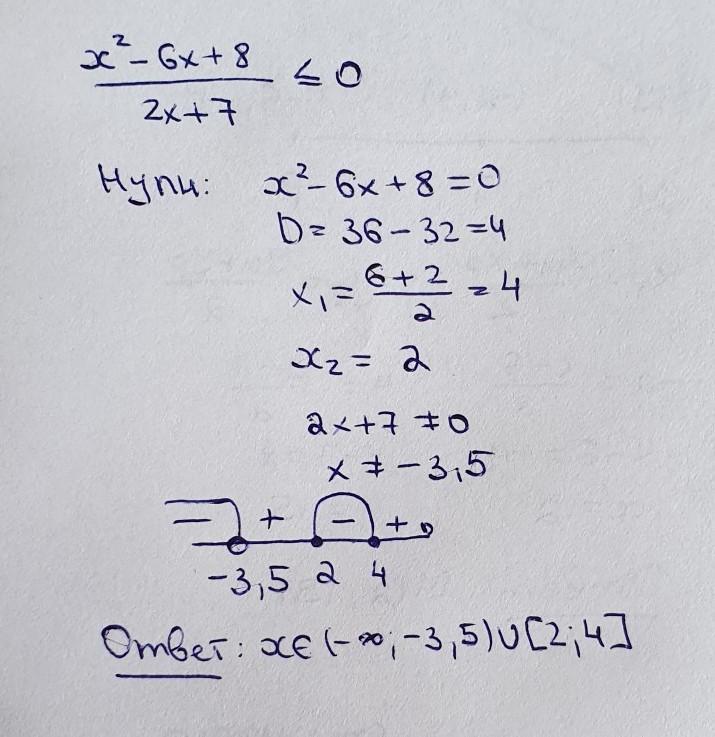 x² - 6x + 8
2x + 7
≤ 0
Нули: x² - 6x + 8 = 0
D = 36 - 32 = 4
x₁ = (6 + 2)/2 = 4
x₂ = 2
2x + 7 ≠ 0
x ≠ -3,5
- + - +
-3,5 2 4
Ответ: x∈(-∞; -3,5)∪[2;4]